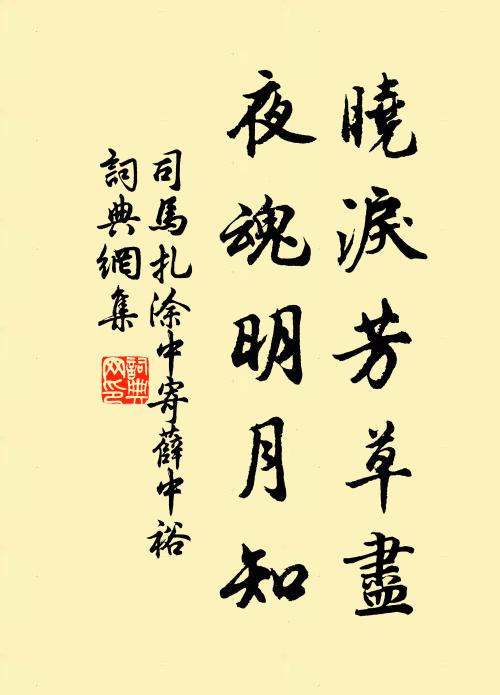 曉淚芳草盡
夜魂明月知
司馬扎涂中寄薛中裕
詞典網集
詞典网印